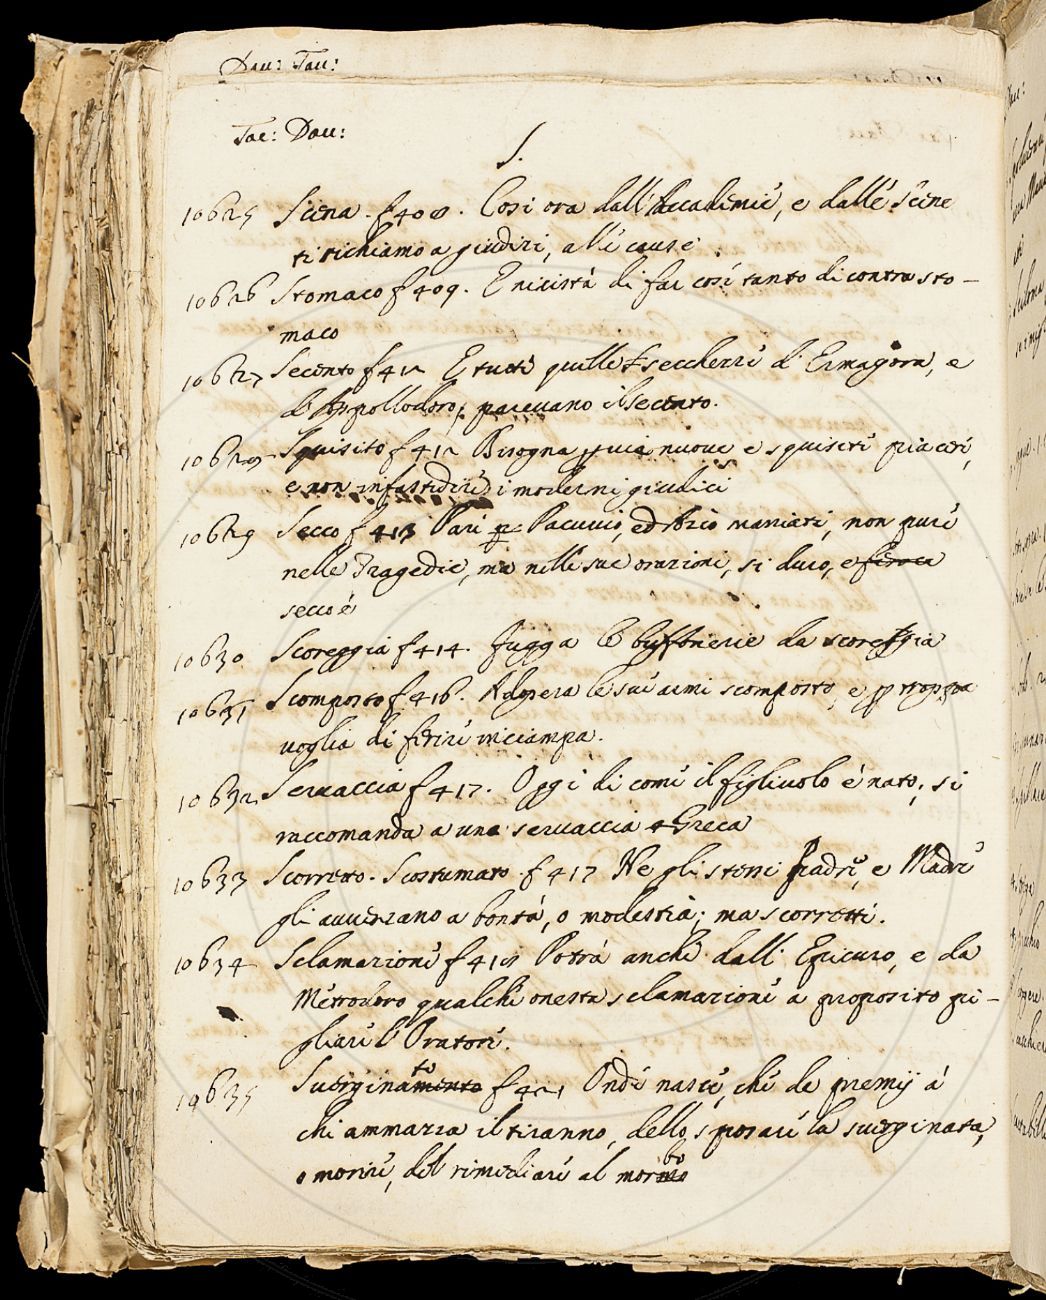 Dau: Tau:
Tac: Dau:
S.
10625 Scena. f 408. Così ora dall'Accademie, e dalle scene
ti richiamo a giudizi, alle cause
10626 Stomaco f 409. E nicistà di far così tanto di contra sto-
maco
10627 Secento f 412 E tutte quelle seccherie d'Ermagora, e
d'Appollodoro, parevano il secento.
10628 Squisito f 412 Bisogna vie nuove e squisite piacer,
e non infastidire i moderni giudici
10629 Secco f 413 Pari per Pacuvio, ed Azio maniati, non pure
nelle Tragedie, ma nelle sue orazioni, si duro, e
secco è
10630 Scoreggia f 414. fugga le buffonerie da scoreggia
10631 Scomposto f 416. Adopera le sue armi scomposto, e per troppa
voglia di ferire inciampa.
10632 Servaccia f 417. Oggi di come il figliuolo è nato, si
raccomanda a una servaccia Greca
10633 Scorretto. Scostumato. f 417 Ne gli stessi Padri, e Madri
gli avvezzano a bontà, o modestia; ma scorretti.
10634 Sclamazione f 418 Potrà anche dall' Epicuro, e da
Metrodoro qualche onesta sclamazione a proposito pi-
gliare l'Oratore.
10635 Sverginata f 421 Onde nasce, che de premij à
chi ammazza il tiranno, dello sposare la sverginata,
o morire, del rimediare al morbo